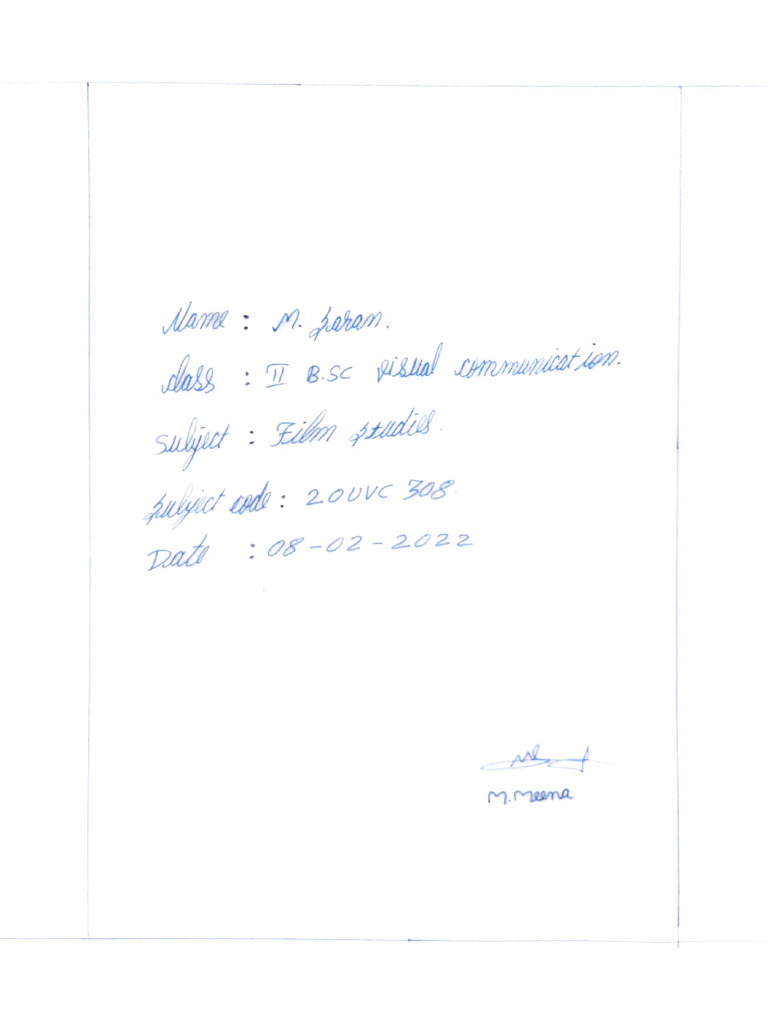 Name : M. Saran.
class : II B.SC visual communication.
Subject : Film Studies.
Subject code : 20UVC 308.
Date : 08-02-2022
M.Meena